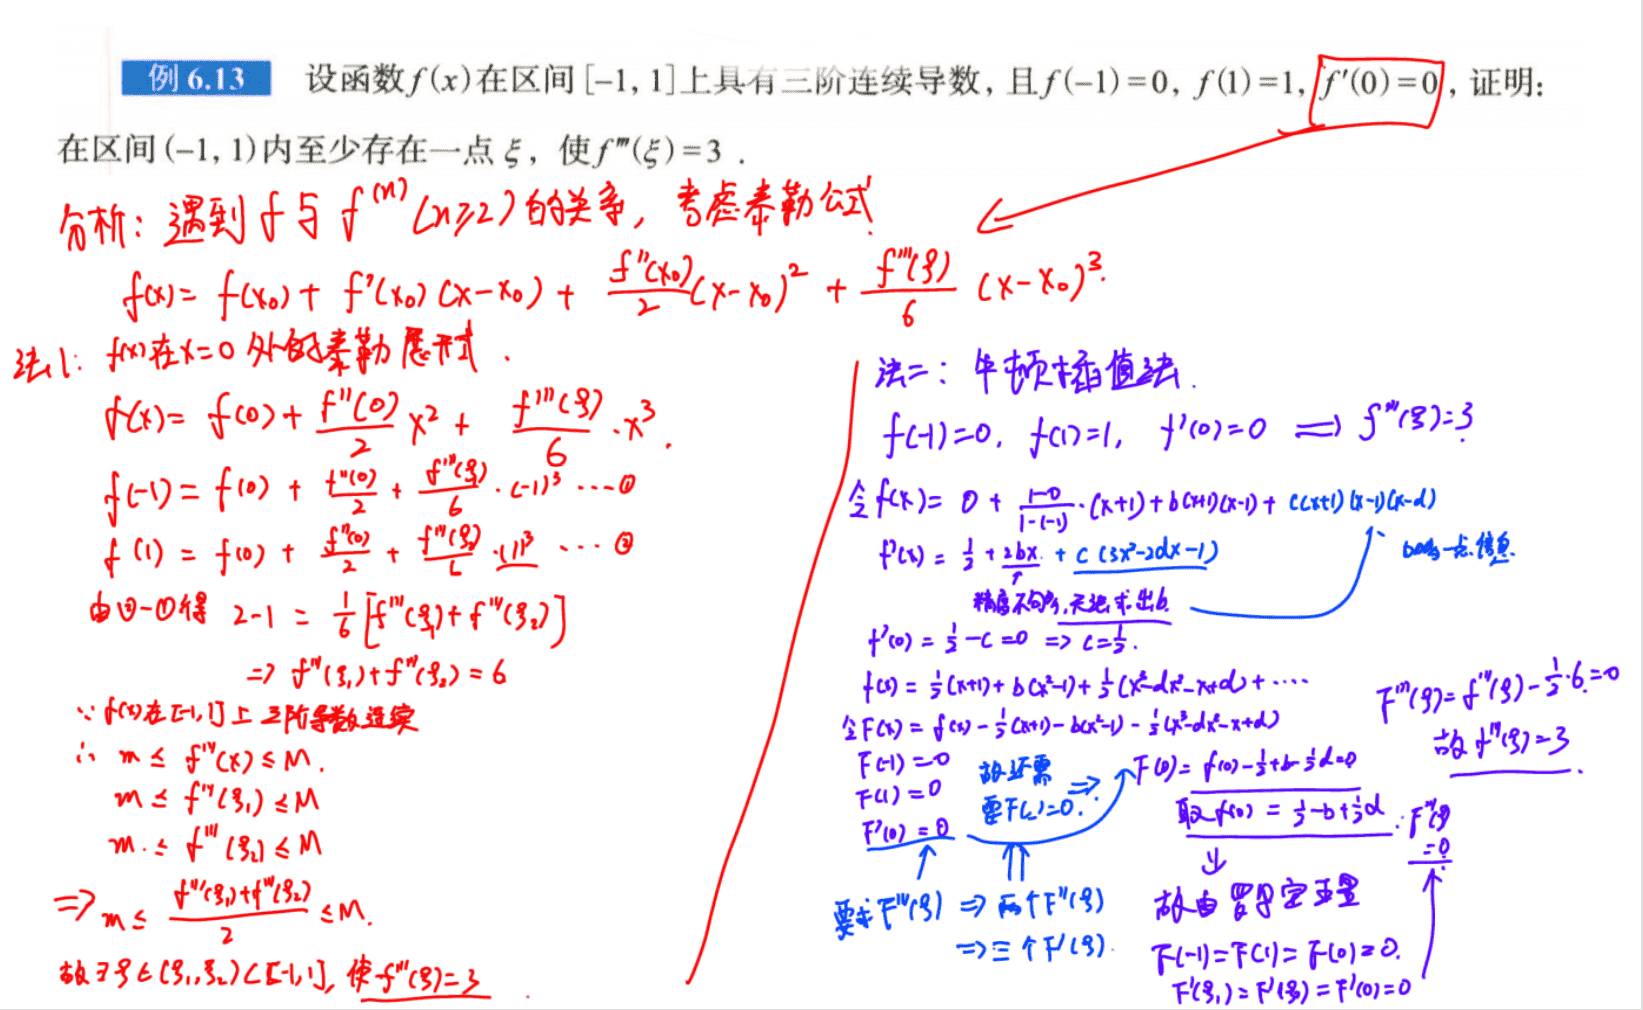 例 6.13 设函数f(x)在区间[-1, 1]上具有三阶连续导数, 且f(-1)=0, f(1)=1, f'(0)=0, 证明:
在区间(-1, 1)内至少存在一点ξ, 使f'''(ξ)=3.
分析: 遇到f与f^(n)(n≥2)的关系, 考虑泰勒公式
f(x)= f(x₀)+ f'(x₀)(x-x₀)+ f''(x₀)/2 (x-x₀)² + f'''(ξ)/6 (x-x₀)³.
法1: f(x)在x=0处的泰勒展开式.
f(x)= f(0)+ f''(0)/2 x² + f'''(ξ)/6 ·x³.
f(-1)= f(0)+ f''(0)/2 + f'''(ξ₁)/6 ·(-1)³ ···①
f(1)= f(0)+ f''(0)/2 + f'''(ξ₂)/6 ·(1)³ ···②
由②-①得 2-1 = 1/6 [f'''(ξ₁)+f'''(ξ₂)]
=> f'''(ξ₁)+f'''(ξ₂)=6
∵ f(x)在[-1,1]上三阶导数连续
∴ m ≤ f'''(x) ≤ M.
m ≤ f'''(ξ₁) ≤ M
m. ≤ f'''(ξ₂) ≤ M
=> m ≤ (f'''(ξ₁)+f'''(ξ₂))/2 ≤ M.
故∃ξ∈(ξ₁,ξ₂)⊂[-1,1], 使f'''(ξ)=3
法二: 牛顿插值法.
f(-1)=0, f(1)=1, f'(0)=0 => f'''(ξ)=3
令f(x)= 0 + (1-0)/(1-(-1)) ·(x+1)+b(x+1)(x-1)+ c(x+1)(x-1)(x-d)
f'(x)= 1/2 + 2bx + c(3x²-2dx-1)
精度不够,无法求出b.
f'(0)= 1/2 -c=0 => c=1/2.
f(x)= 1/2(x+1)+ b(x²-1)+ 1/2(x³-dx²-x+d)+····
令F(x)= f(x)- 1/2(x+1)-b(x²-1)- 1/2(x³-dx²-x+d)
F(-1)=0
F(1)=0
F'(0)=0
故还需
要F( )=0.
=> F(0)= f(0)-1/2+b-1/2d=0
取f(0)= 1/2-b+1/2d
要求F'''(ξ) => 两个F''(ξ)
=> 三个F'(ξ).
故由罗尔定理
F(-1)=F(1)=F(0)=0.
F'(ξ₁)=F'(ξ₂)=F'(0)=0
∴F'''(ξ)
=0
F'''(ξ)=f'''(ξ)-1/2·6=0
故f'''(ξ)=3